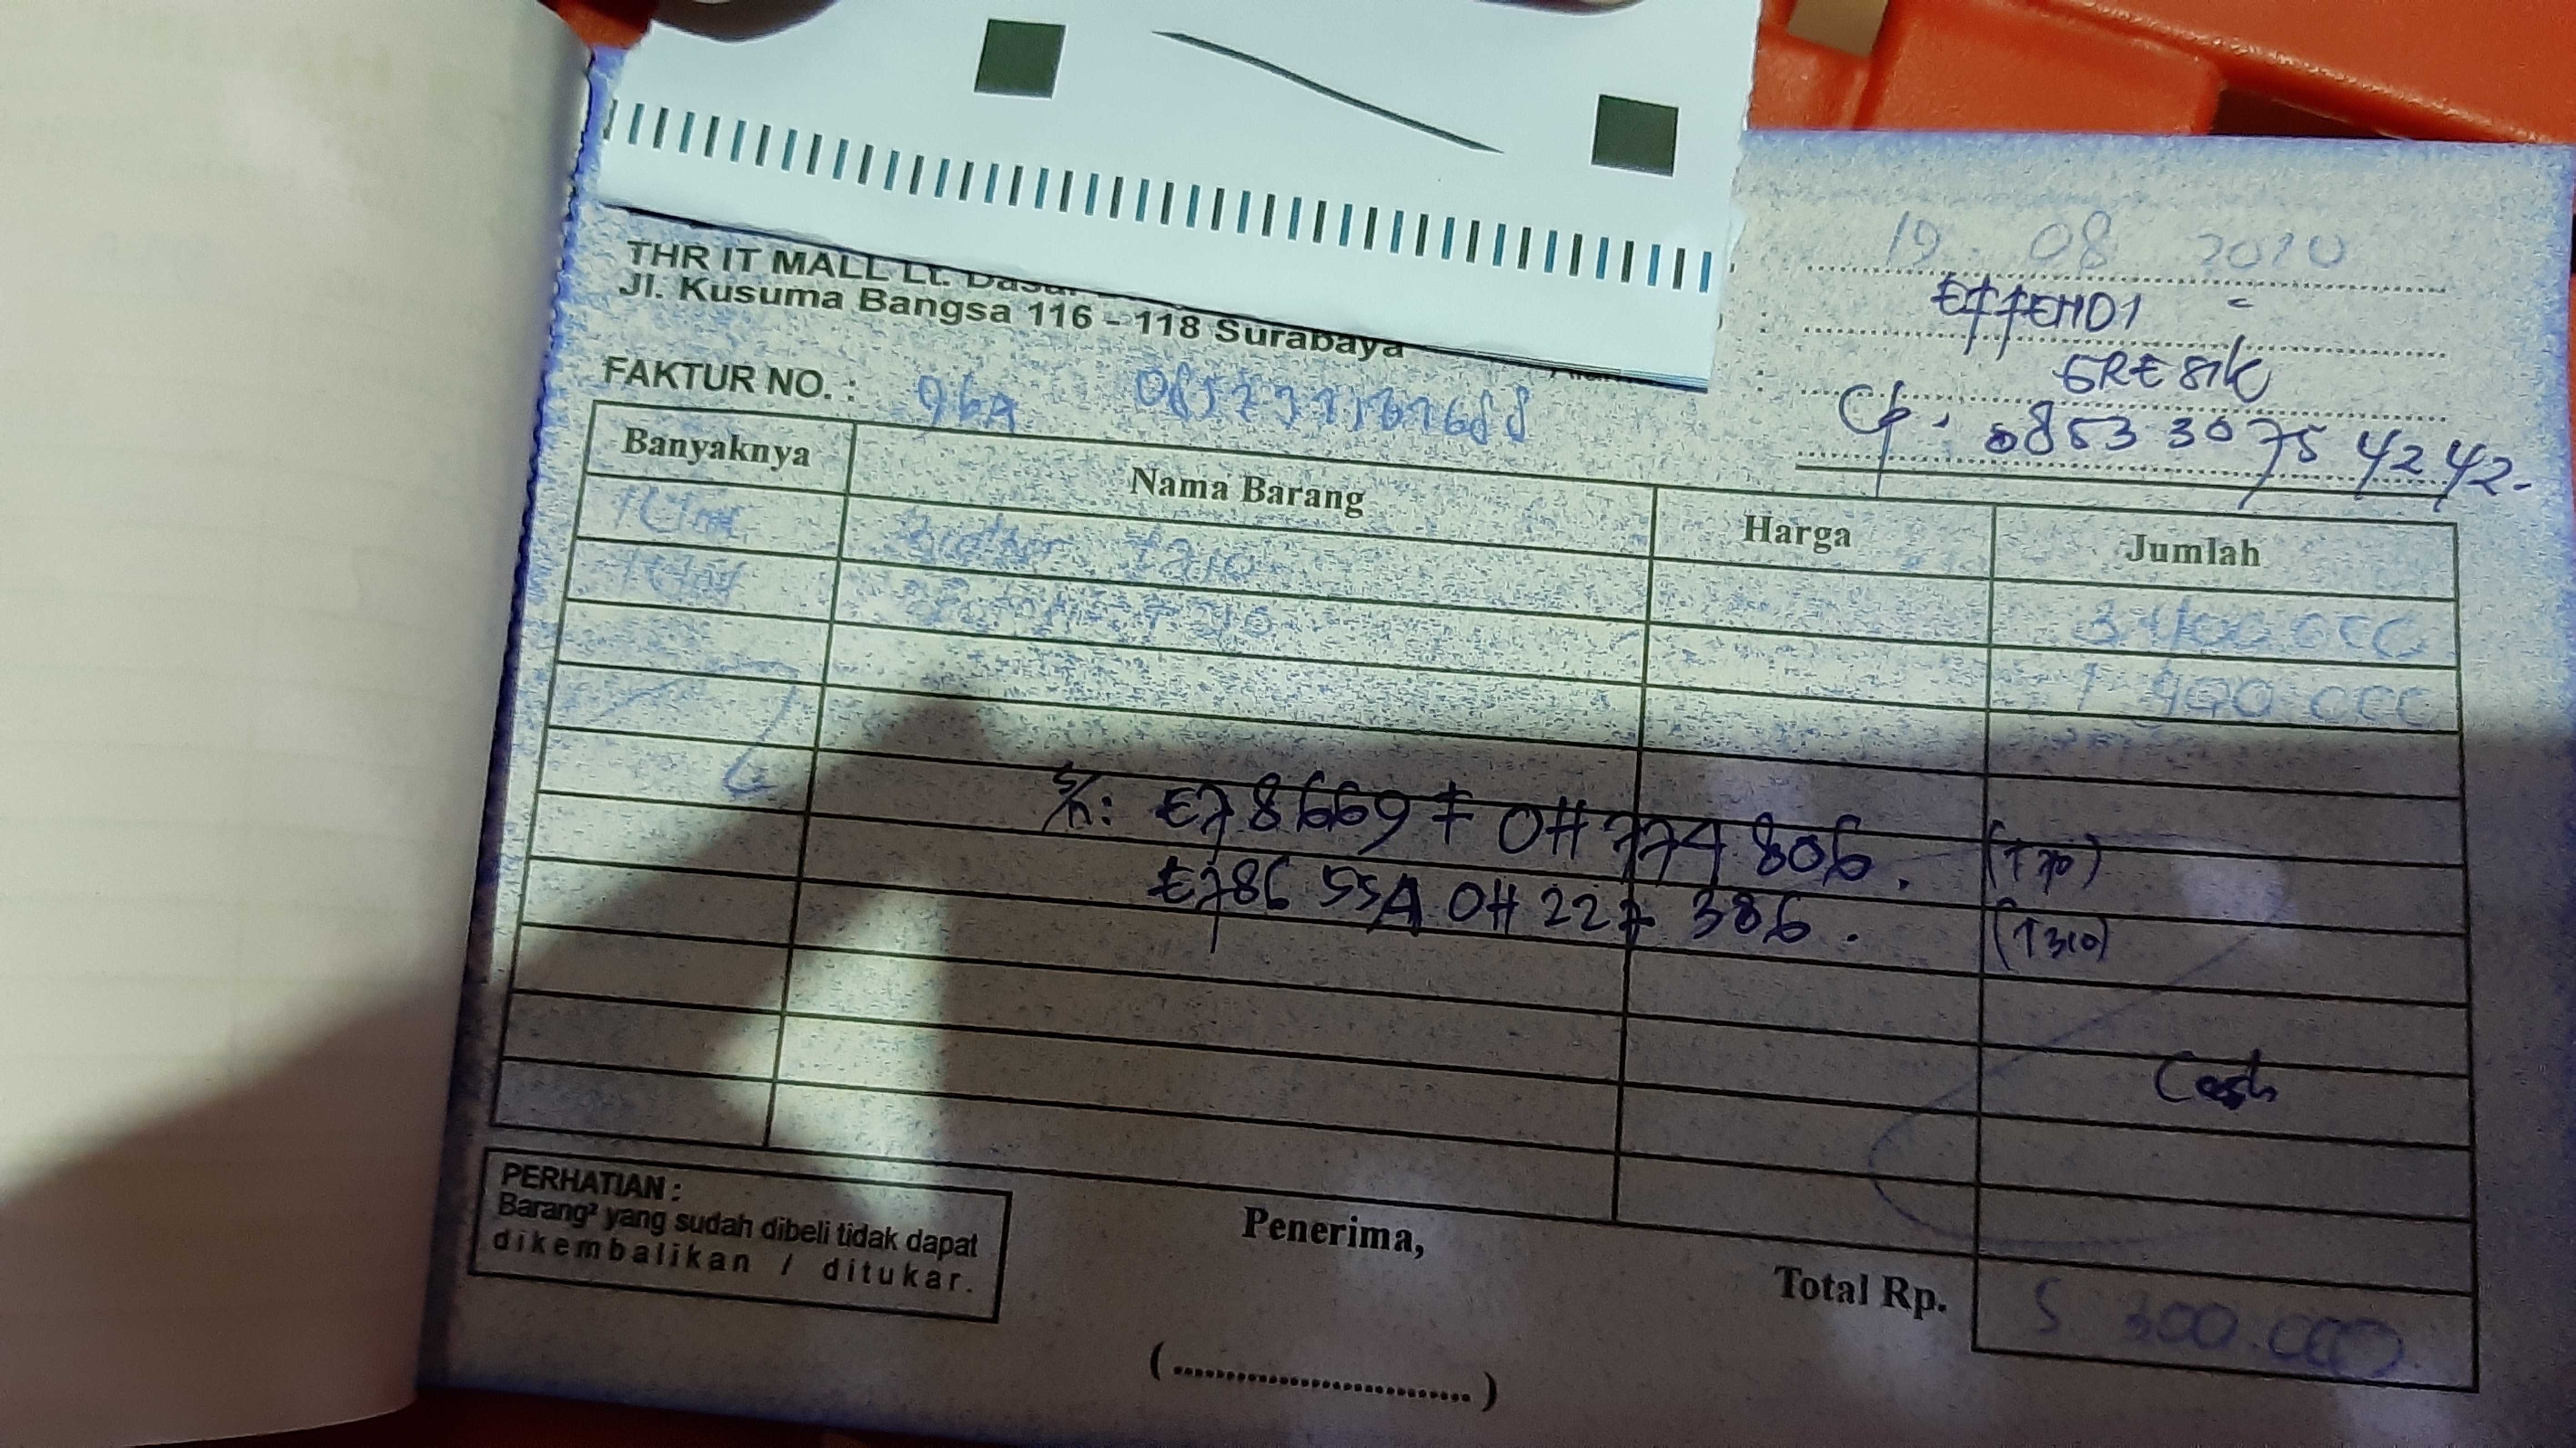 THR IT MALL Lt. Dasar
Jl. Kusuma Bangsa 116 - 118 Surabaya
19 08 2020
EFFENDI
GRESIK
Cp. 0853 3075 4242.
FAKTUR NO. :
Banyaknya Nama Barang Harga Jumlah
1 Unit Brother T310 3 400.000
1 Unit 1 900.000
S/n: E78669F0H774806. (T710)
E78655A0H227386. (T310)
Cash
PERHATIAN :
Barang² yang sudah dibeli tidak dapat
dikembalikan / ditukar.
Penerima,
Total Rp. 5 300.000
(..............................)